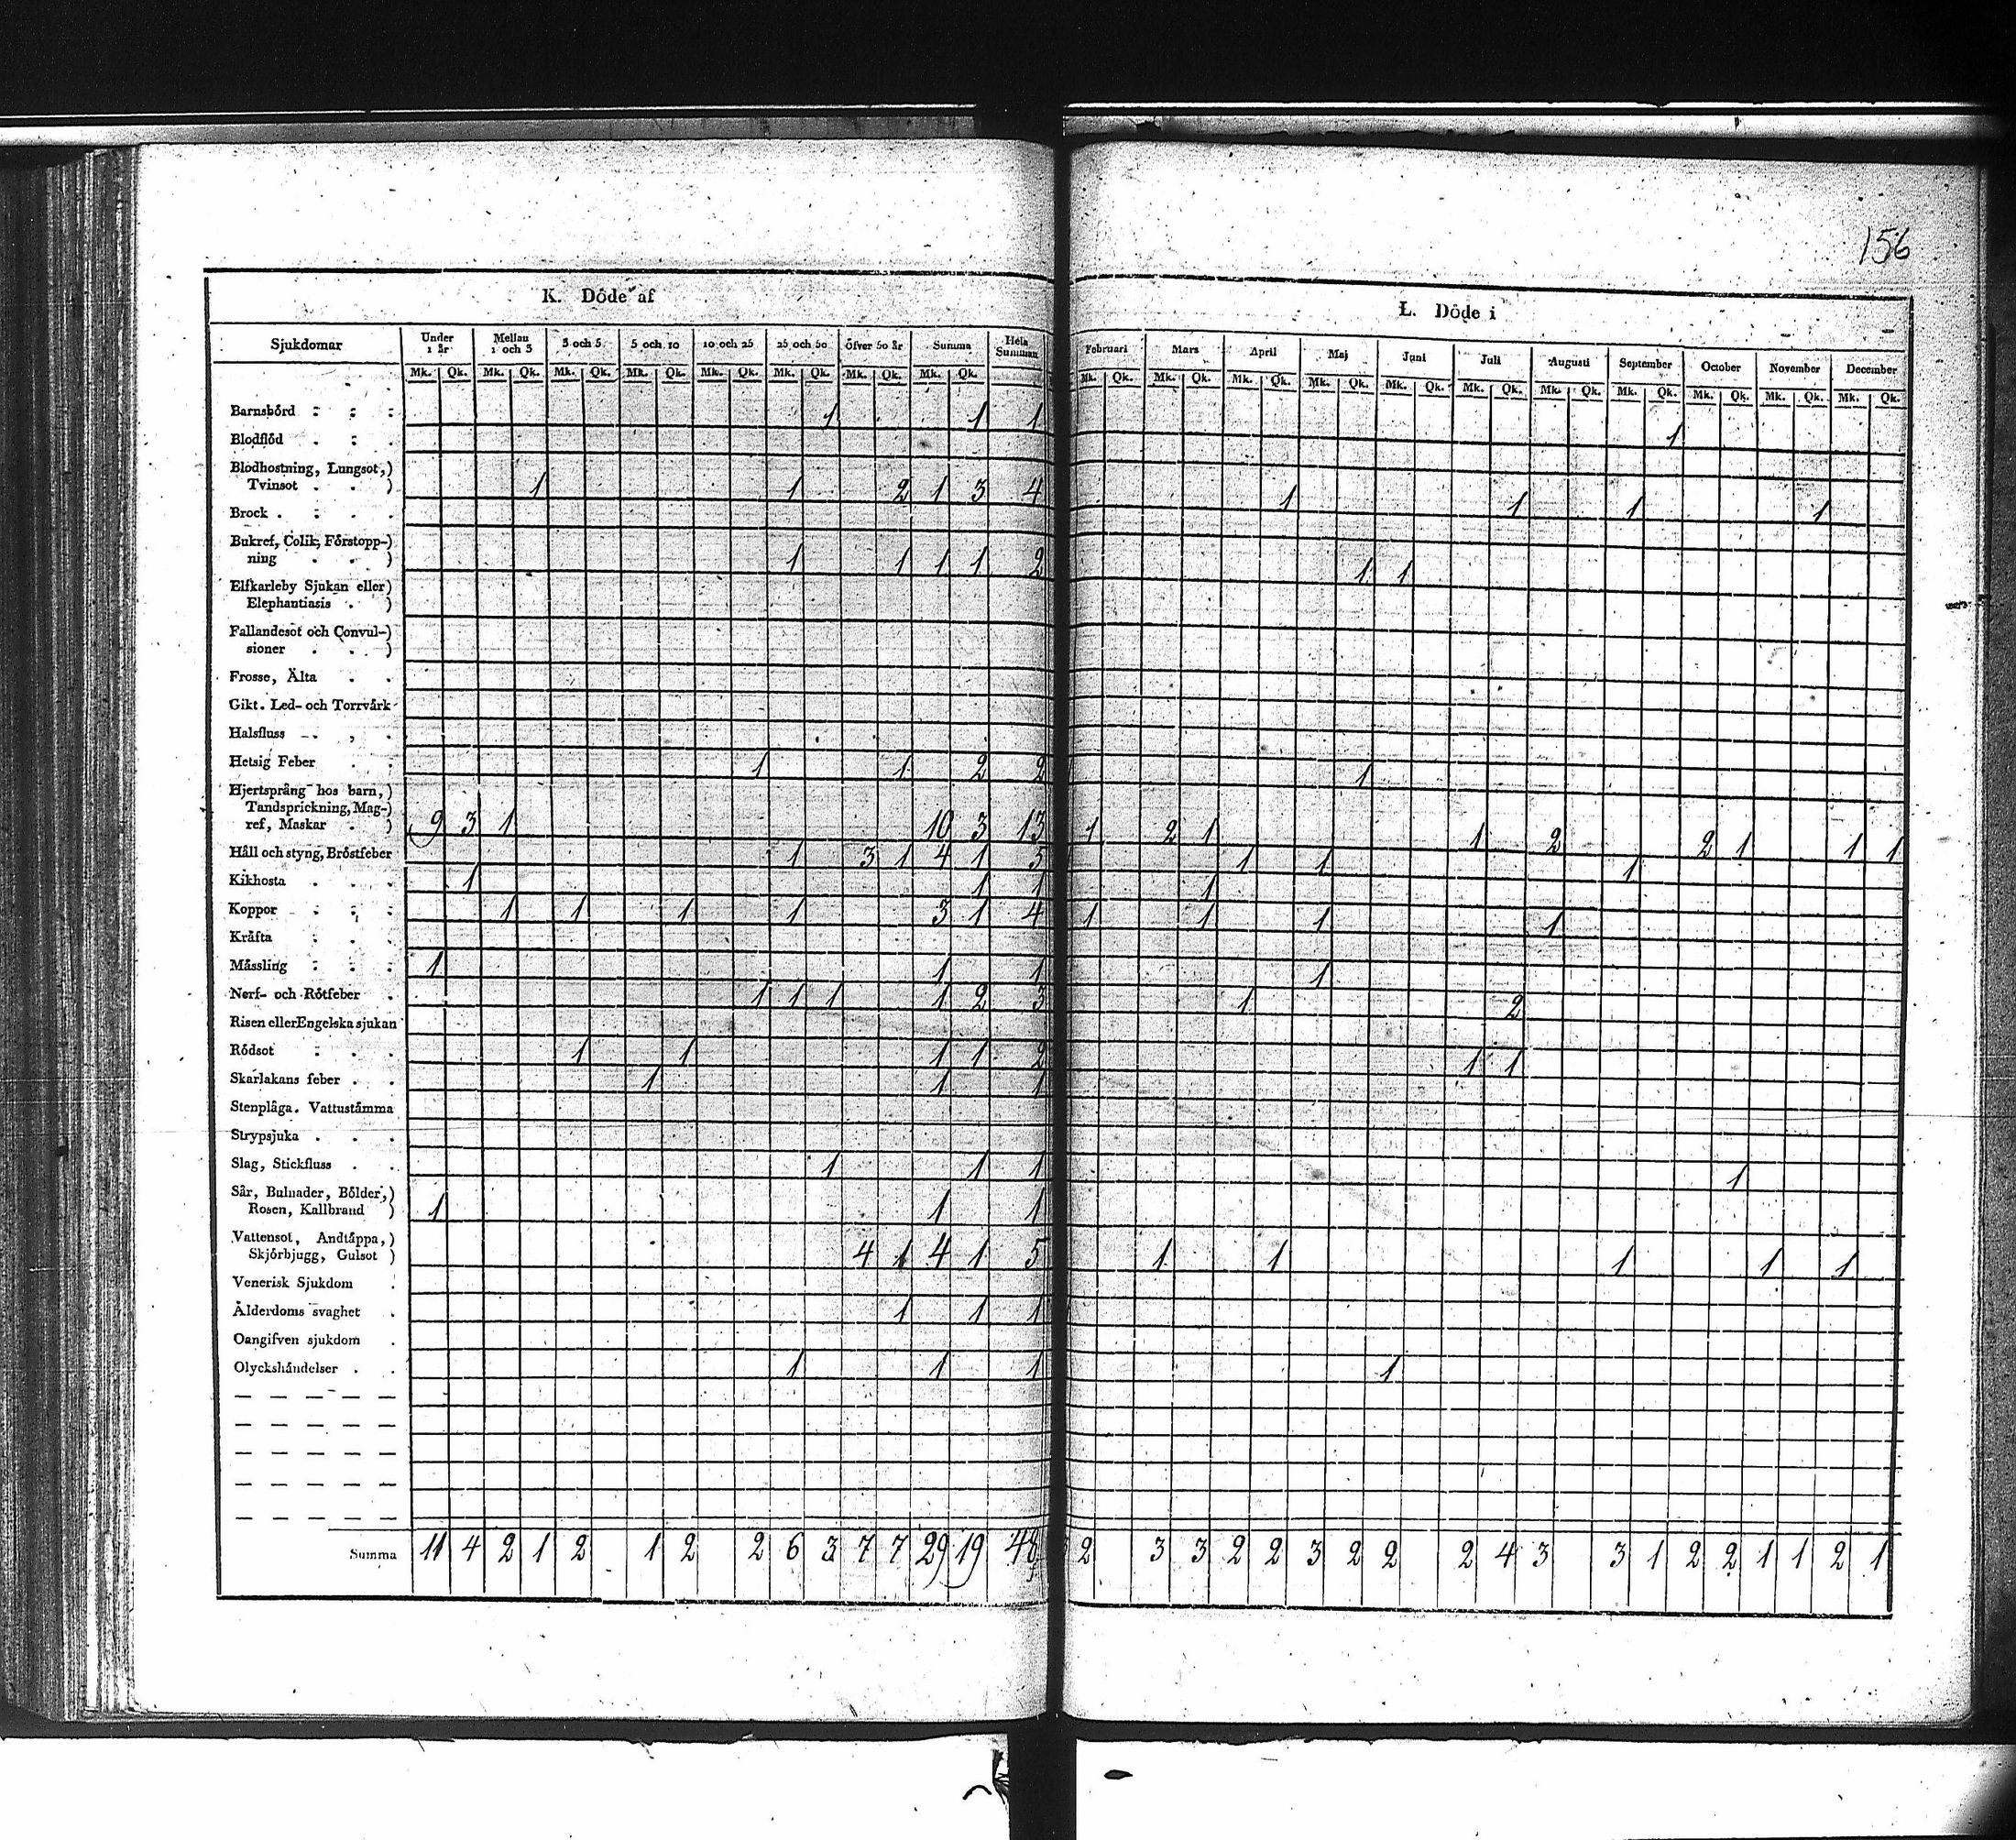 156
K. Döde af
L. Döde i
Sjukdomar Under 1 år Mellan 1 och 3 3 och 5 5 och 10 10 och 25 25 och 50 Öfver 50 år Summa Hela Summan Februari Mars April Maj Juni Juli Augusti September October November December
Mk. Qk. Mk. Qk. Mk. Qk. Mk. Qk. Mk. Qk. Mk. Qk. Mk. Qk. Mk. Qk. Mk. Qk. Mk. Qk. Mk. Qk. Mk. Qk. Mk. Qk. Mk. Qk. Mk. Qk. Mk. Qk. Mk. Qk. Mk. Qk. Mk. Qk.
Barnsbörd 1 1 1 1
Blodflöd
Blodhostning, Lungsot,)
Tvinsot . . ) 1 1 2 1 3 4 1 1 1 1
Brock .
Bukref, Colik, Förstopp-)
ning . . ) 1 1 1 1 2 1 1
Elfkarleby Sjukan eller)
Elephantiasis . )
Fallandesot och Convul-)
sioner . . )
Frosse, Älta
Gikt. Led- och Torrvärk
Halsfluss
Hetsig Feber 1 1 2 2 1
Hjertsprång hos barn,)
Tandsprickning, Mag-)
ref, Maskar . ) 9 3 1 10 3 13 1 2 1 1 2 2 1 1 1
Håll och styng, Bröstfeber 1 3 1 4 1 5 1 1 1
Kikhosta 1 1 1 1
Koppor 1 1 1 1 3 1 4 1 1 1 1
Kräfta
Mässling 1 1 1 1
Nerf- och Rötfeber 1 1 1 1 2 3 1 2
Risen eller Engelska sjukan
Rödsot 1 1 1 1 2 1 1
Skarlakans feber 1 1 1
Stenplåga. Vattustämma
Strypsjuka
Slag, Stickfluss 1 1 1 1
Sår, Bulnader, Bölder,)
Rosen, Kallbrand ) 1 1 1
Vattensot, Andtäppa,)
Skjörbjugg, Gulsot ) 4 1 4 1 5 1 1 1 1 1
Venerisk Sjukdom
Ålderdoms svaghet 1 1 1
Oangifven sjukdom
Olyckshändelser 1 1 1 1
Summa 11 4 2 1 2 1 2 2 6 3 7 7 29 19 48 2 3 3 2 2 3 2 2 2 4 3 3 1 2 2 1 1 2 1